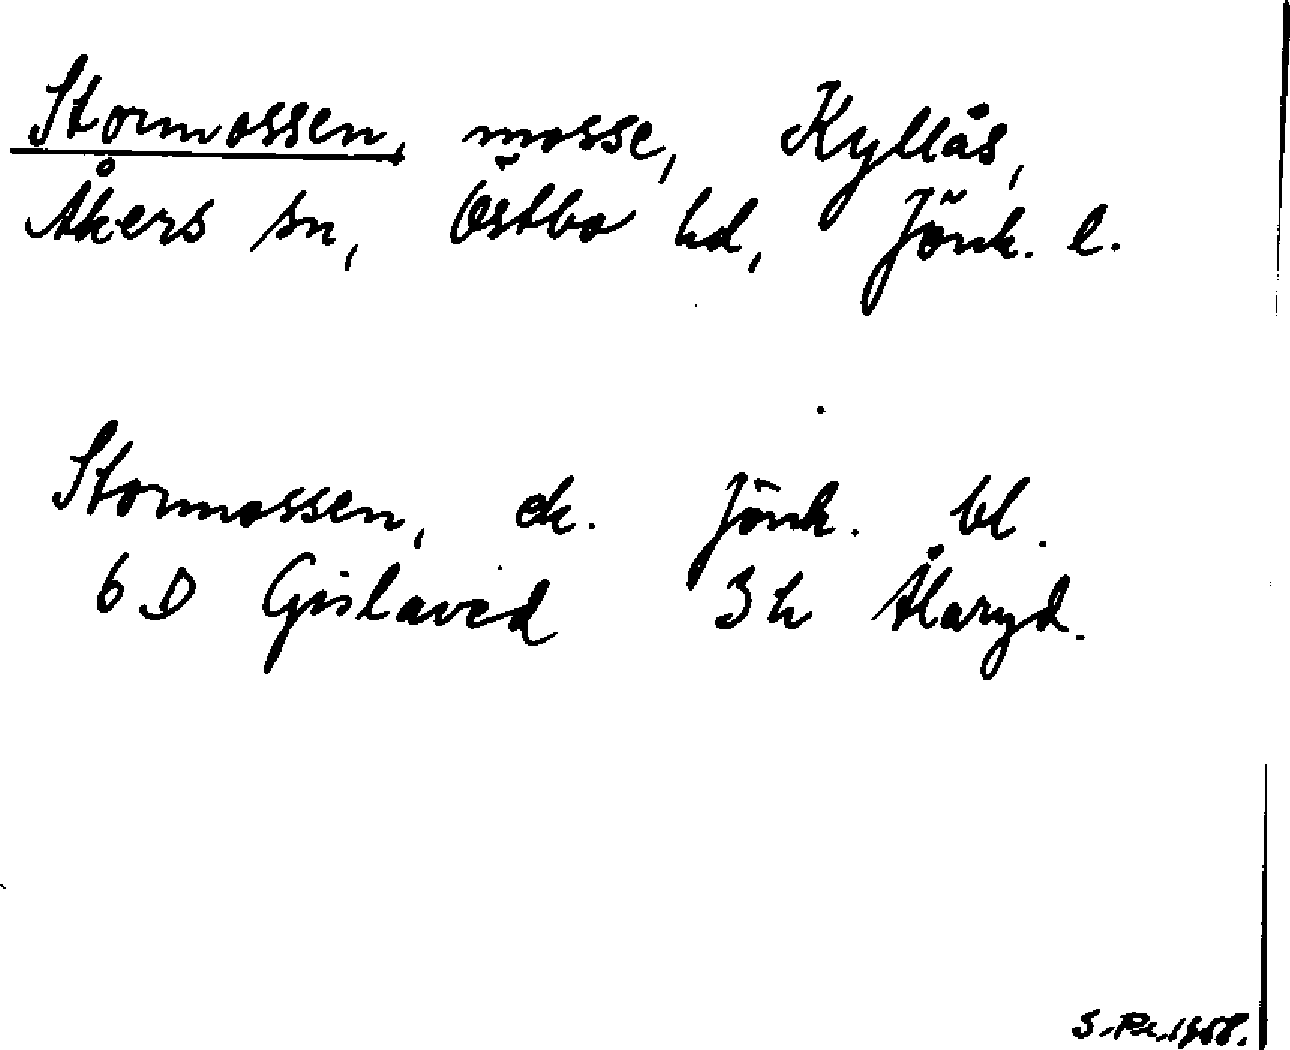 Stormossen, mosse, Kyllås,
Åkers sn, Östbo hd, Jönk. l.
Stormossen, ek. Jönk. bl.
6 D Gislaved 3h Ålaryd.